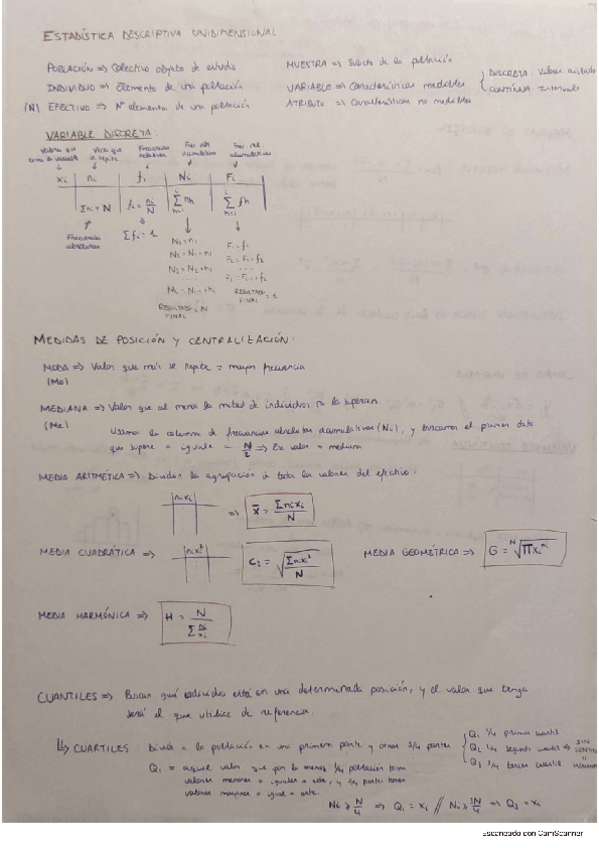 ESTADÍSTICA DESCRIPTIVA UNIDIMENSIONAL
POBLACIÓN => Colectivo objeto de estudio
MUESTRA => Subcto de la población
INDIVIDUO => Elemento de una población
VARIABLE => Características medibles { DISCRETA: Valores aislados
CONTINUA: Intervalos
(N) EFECTIVO => Nº elementos de una población
ATRIBUTO => Características no medibles
VARIABLE DISCRETA:
Valores que toma la variable
Veces que se repite
Frecuencias relativas
Frec. abs. acumulativas
Frec. rel. acumulativas
xi | ni | fi | Ni | Fi
Σni = N | fi = ni/N | Σnh | Σfh
Frecuencias absolutas
Σfi = 1
N1 = n1
F1 = f1
RESULTADO FINAL = N
RESULTADO FINAL = 1
MEDIDAS DE POSICIÓN Y CENTRALIZACIÓN:
MODA => Valor que más se repite = mayor frecuencia
(Mo)
MEDIANA => Valor que al menos la mitad de individuos no la superan
(Me)
Usamos la columna de frecuencias absolutas acumulativas (Ni), y buscamos el primer dato
que supere o iguale = N/2 => Ese valor = mediana
MEDIA ARITMÉTICA => Dividir la agrupación de todos los valores del efectivo.
| ni xi | => x̄ = Σnixi / N
MEDIA CUADRÁTICA => | nixi² | C2 = √(Σnixi² / N)
MEDIA GEOMÉTRICA => G = ᴺ√(∏xi^ni)
MEDIA HARMÓNICA => H = N / Σ(ni/xi)
CUANTILES => Buscan qué individuo está en una determinada posición, y el valor que tenga
será el que utilice de referencia.
↳ CUARTILES Divide a la población en una primera parte y otras 3/4 partes { Q1 1/4 primer cuartil
Q2 2/4 segundo cuartil =>
Q3 3/4 tercer cuartil
SIN
Q1 = aquel valor que por lo menos 1/4 población toma
valores menores o iguales a este, y 3/4 partes toman
valores mayores o igual a este.
Ni ≥ N/4 => Q1 = xi // Ni ≥ 3N/4 => Q3 = xi
Escaneado con CamScanner